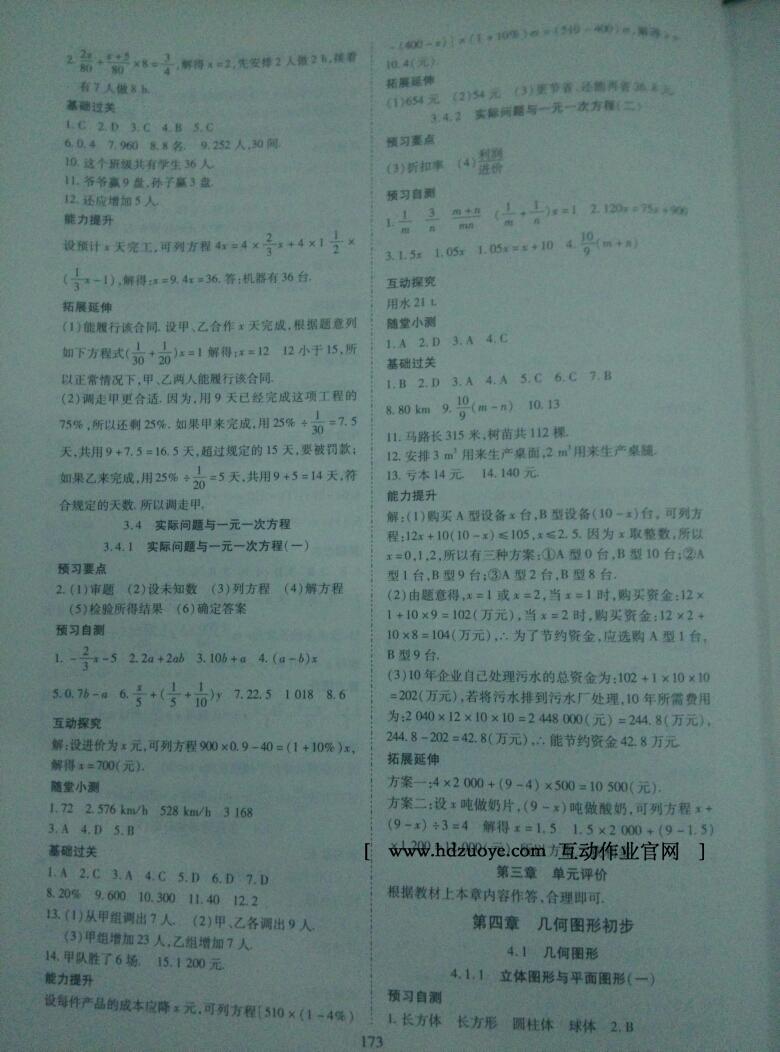 2. 2x/80 + x+5/80 ×8= 3/4 ,解得 x=2,先安排2人做2 h,接着
有7人做8 h.
基础过关
1. C 2. D 3. C 4. B 5. C
6. 0.4 7. 960 8. 8名. 9. 252人,30间.
10. 这个班级共有学生36人.
11. 爷爷赢9盘,孙子赢3盘.
12. 还应增加5人.
能力提升
设预计x天完工,可列方程 4x=4× 2/3 x+4×1 1/2 ×
( 1/3 x-1),解得:x=9. 4x=36. 答:机器有36台.
拓展延伸
(1)能履行该合同. 设甲、乙合作x天完成,根据题意列
如下方程式( 1/30 + 1/20 )x=1 解得:x=12 12小于15,所
以正常情况下,甲、乙两人能履行该合同.
(2)调走甲更合适. 因为,用9天已经完成这项工程的
75%,所以还剩25%. 如果甲来完成,用25%÷ 1/30 =7.5
天,共用9+7.5=16.5天,超过规定的15天,要被罚款;
如果乙来完成,用25%÷ 1/20 =5天,共用9+5=14天,符
合规定的天数. 所以调走甲.
3.4 实际问题与一元一次方程
3.4.1 实际问题与一元一次方程(一)
预习要点
2. (1)审题 (2)设未知数 (3)列方程 (4)解方程
(5)检验所得结果 (6)确定答案
预习自测
1. - 2/3 x-5 2. 2a+2ab 3. 10b+a 4. (a-b)x
5. 0.7b-a 6. x/5 +( 1/5 + 1/10 )y 7. 22.5 1 018 8. 6
互动探究
解:设进价为x元,可列方程900×0.9-40=(1+10%)x,
解得x=700(元).
随堂小测
1. 72 2. 576 km/h 528 km/h 3 168
3. A 4. D 5. B
基础过关
1. A 2. C 3. A 4. C 5. D 6. D 7. D
8. 20% 9. 600 10. 300 11. 40 12. 2
13. (1)从甲组调出7人. (2)甲、乙各调出9人.
(3)甲组增加23人,乙组增加7人.
14. 甲队胜了6场. 15. 1 200元.
能力提升
设每件产品的成本应降x元,可列方程[510×(1-4%)
-(400-x)]×(1+10%)m=(510-400)m,解得x=
10.4(元).
拓展延伸
(1)654元 (2)54元 (3)更节省、还能再省36.8元
3.4.2 实际问题与一元一次方程(二)
预习要点
(3)折扣率 (4) 利润/进价
预习自测
1. 1/m 3/n m+n/mn ( 1/m + 1/n )x=1 2. 120x=75x+900
3. 1.5x 1.05x 1.05x=x+10 4. 10/9 (m+n)
互动探究
用水21 t.
随堂小测
1. A 2. D 3. A 4. C
基础过关
1. B 2. D 3. A 4. A 5. C 6. C 7. B
8. 80 km 9. 10/9 (m-n) 10. 13
11. 马路长315米,树苗共112棵.
12. 安排3 m³用来生产桌面,2 m³用来生产桌腿.
13. 亏本14元. 14. 140元.
能力提升
解:(1)购买A型设备x台,B型设备(10-x)台, 可列方
程:12x+10(10-x)≤105,x≤2.5. 因为x取整数,所以
x=0,1,2,所以有三种方案:①A型0台,B型10台;②A
型1台,B型9台;③A型2台,B型8台.
(2)由题意得,x=1或x=2,当x=1时,购买资金:12×
1+10×9=102(万元),当x=2时,购买资金:12×2+
10×8=104(万元),∴为了节约资金,应选购A型1台,
B型9台.
(3)10年企业自己处理污水的总资金为:102+1×10×10
=202(万元),若将污水排到污水厂处理,10年所需费用
为:2 040×12×10×10=2 448 000(元)=244.8(万元),
244.8-202=42.8(万元),∴能节约资金42.8万元.
拓展延伸
方案一:4×2 000+(9-4)×500=10 500(元).
方案二:设x吨做奶片,(9-x)吨做酸奶,可列方程x+
(9-x)÷3=4 解得x=1.5 1.5×2 000+(9-1.5)
×1 200=12 000(元),所以方
[ www.hdzuoye.com 互动作业官网 ]
第三章 单元评价
根据教材上本章内容作答,合理即可.
第四章 几何图形初步
4.1 几何图形
4.1.1 立体图形与平面图形(一)
预习自测
1. 长方体 长方形 圆柱体 球体 2. B
173